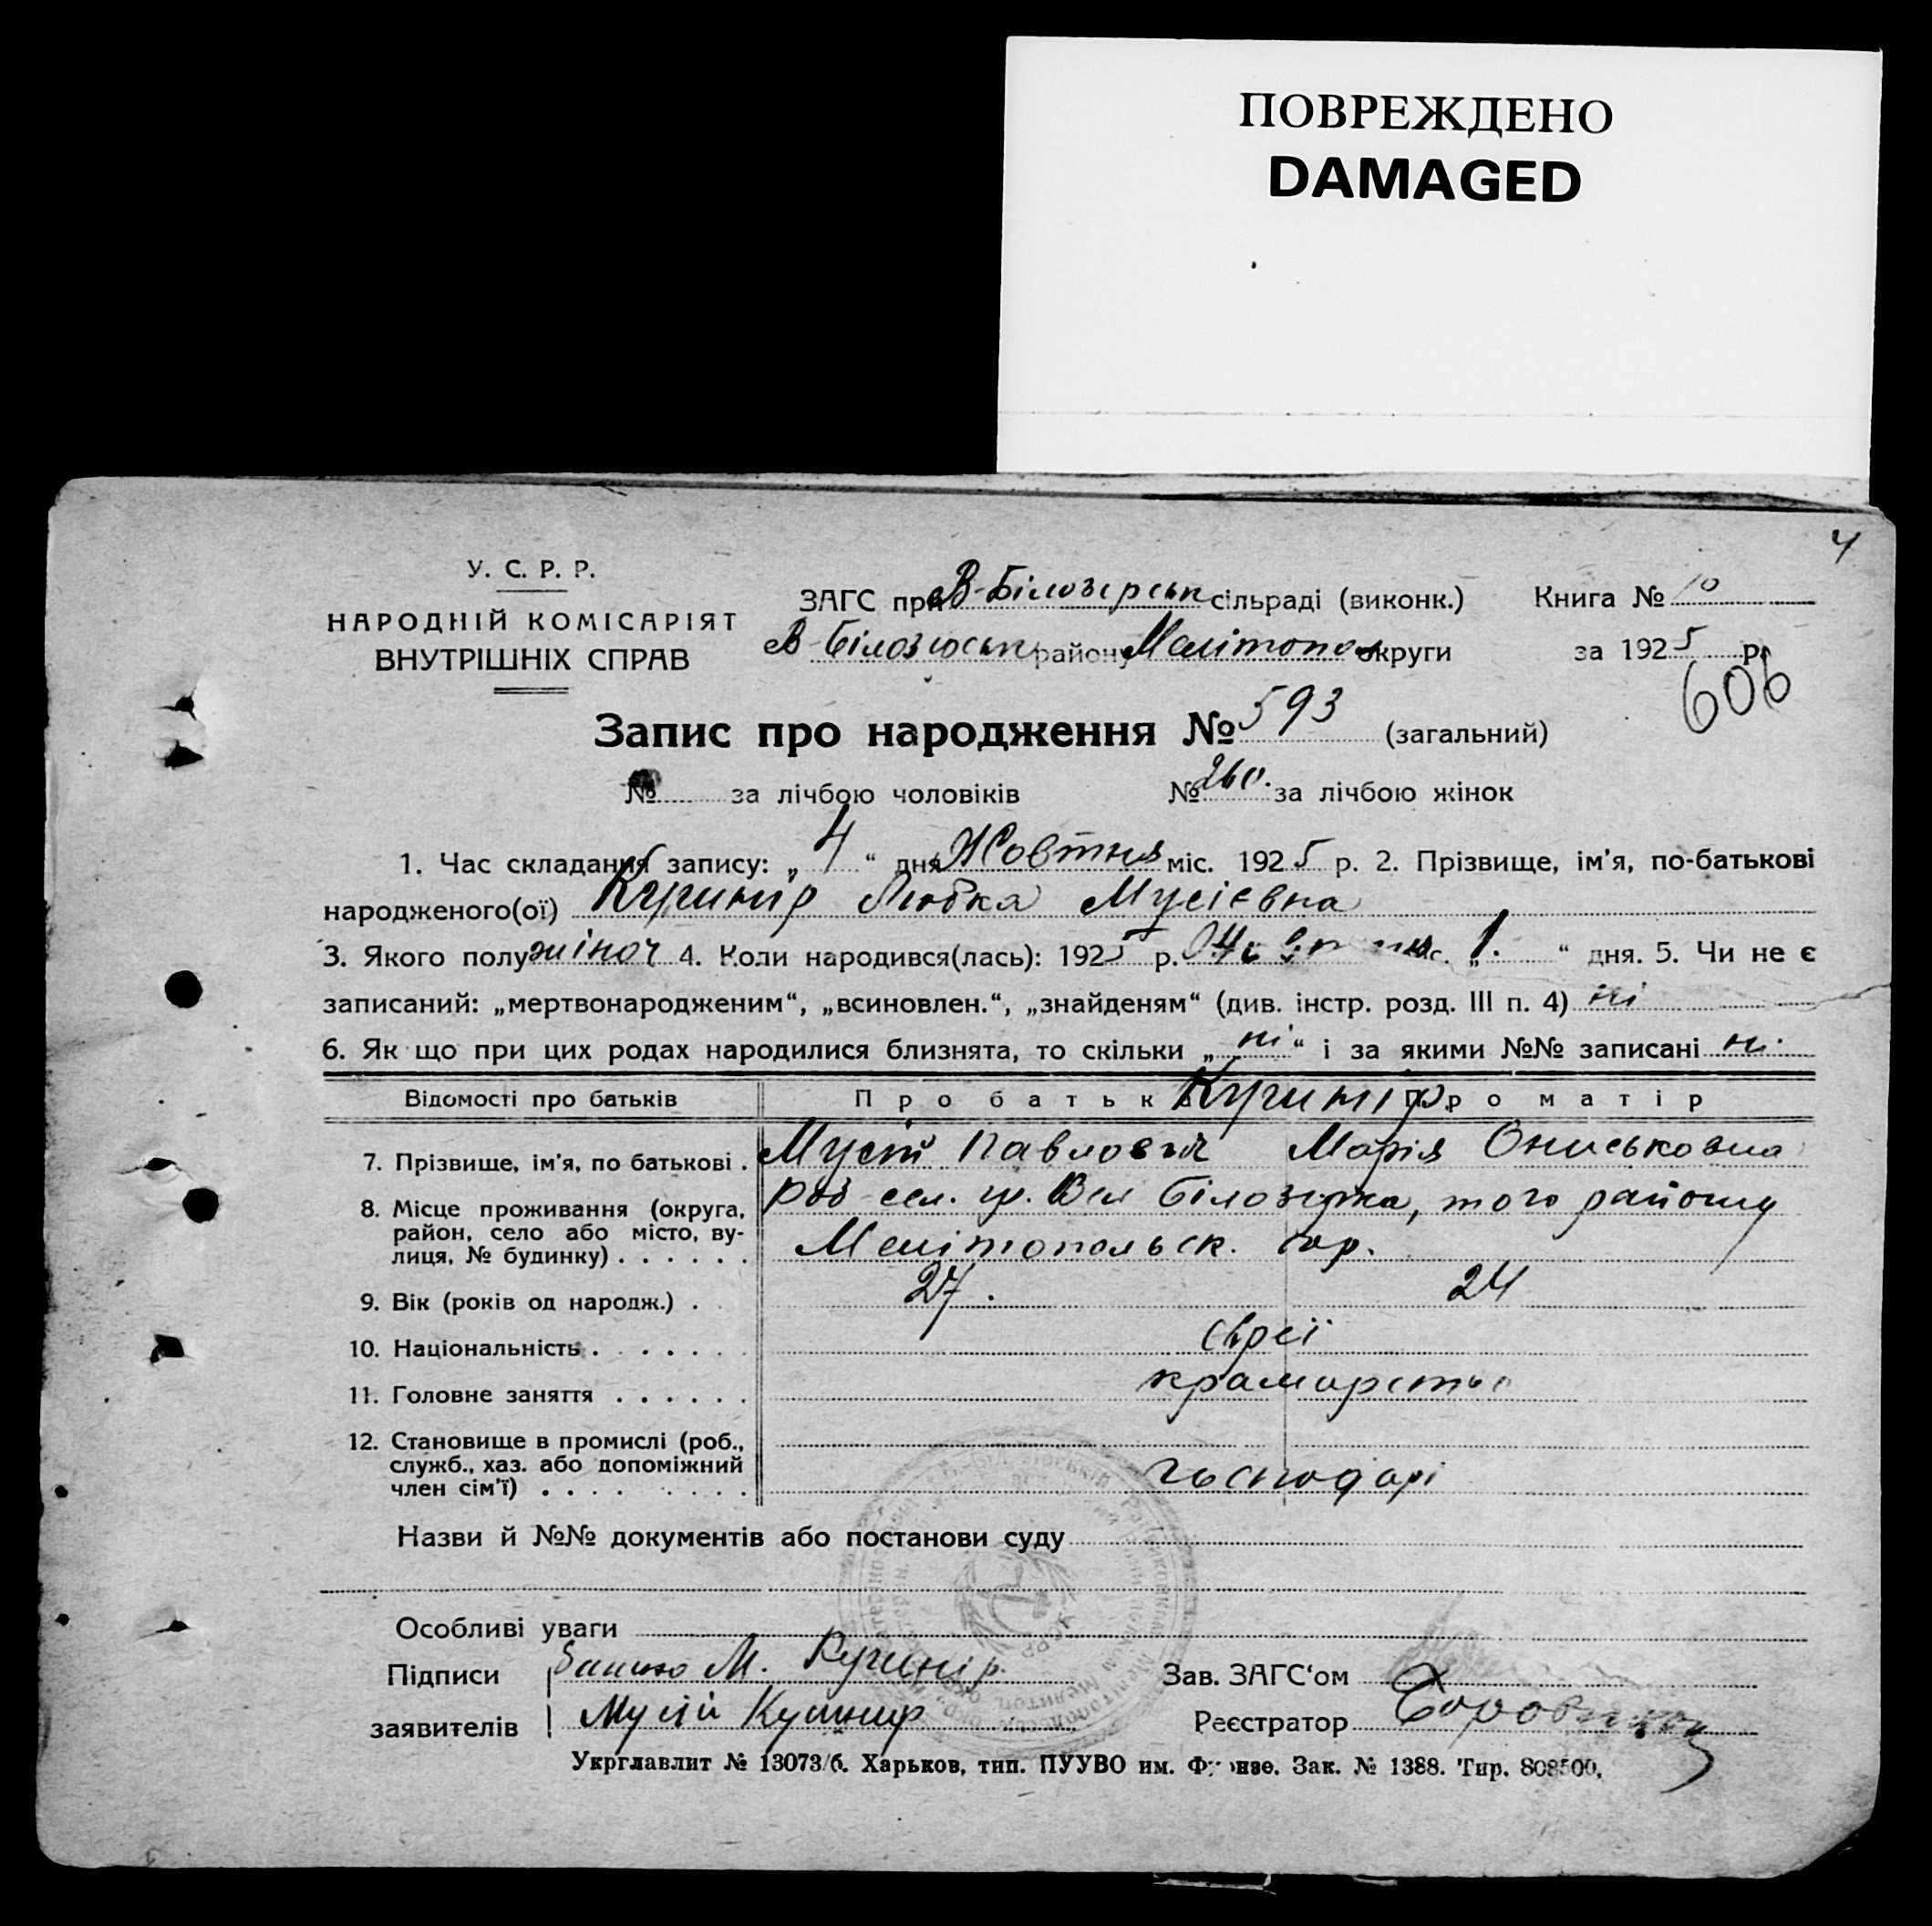 ПОВРЕЖДЕНО
DAMAGED
4
У. С. Р. Р.
НАРОДНІЙ КОМІСАРІЯТ
ВНУТРІШНІХ СПРАВ
ЗАГС при В-Білозерськ сільраді (виконк.)
Книга № 10
В-Білозерськ району Мелітопол округи
за 1925 р.
606
Запис про народження № 593 (загальний)
№ за лічбою чоловіків № 260. за лічбою жінок
1. Час складання запису: „ 4 “ дня Жовтня міс. 1925 р. 2. Прізвище, ім'я, по-батькові
народженого(ої) Кушнир Любка Мусієвна
3. Якого полу жіноч 4. Коли народився(лась): 1925 р. міс. „ 1. “ дня. 5. Чи не є
записаний: „мертвонародженим“, „всиновлен.“, „знайденям“ (див. інстр. розд. III п. 4) ні
6. Як що при цих родах народилися близнята, то скільки „ ні “ і за якими №№ записані ні.
Відомості про батьків Про батька Кушнір Про матір
7. Прізвище, ім'я, по батькові . Мусій Павлович Марія Ониськовна
8. Місце проживання (округа, район, село або місто, вулиця, № будинку) . . . . . . сел. Вел Білозерка, того району
Мелітопольск. окр.
9. Вік (років од народж.) . 27. 24
10. Національність . . . . . . . євреї
11. Головне заняття . . . . . . крамарство
12. Становище в промислі (роб., служб., хаз. або допоміжний член сім'ї) . . . . . . . . господарі
Назви й №№ документів або постанови суду
Особливі уваги
Підписи М. Кушнір.
Зав. ЗАГС'ом
заявителів Мусій Кушнир
Реєстратор
Укрглавлит № 13073/б. Харьков, тип. ПУУВО им. Фрунзе. Зак. № 1388. Тир. 808500,